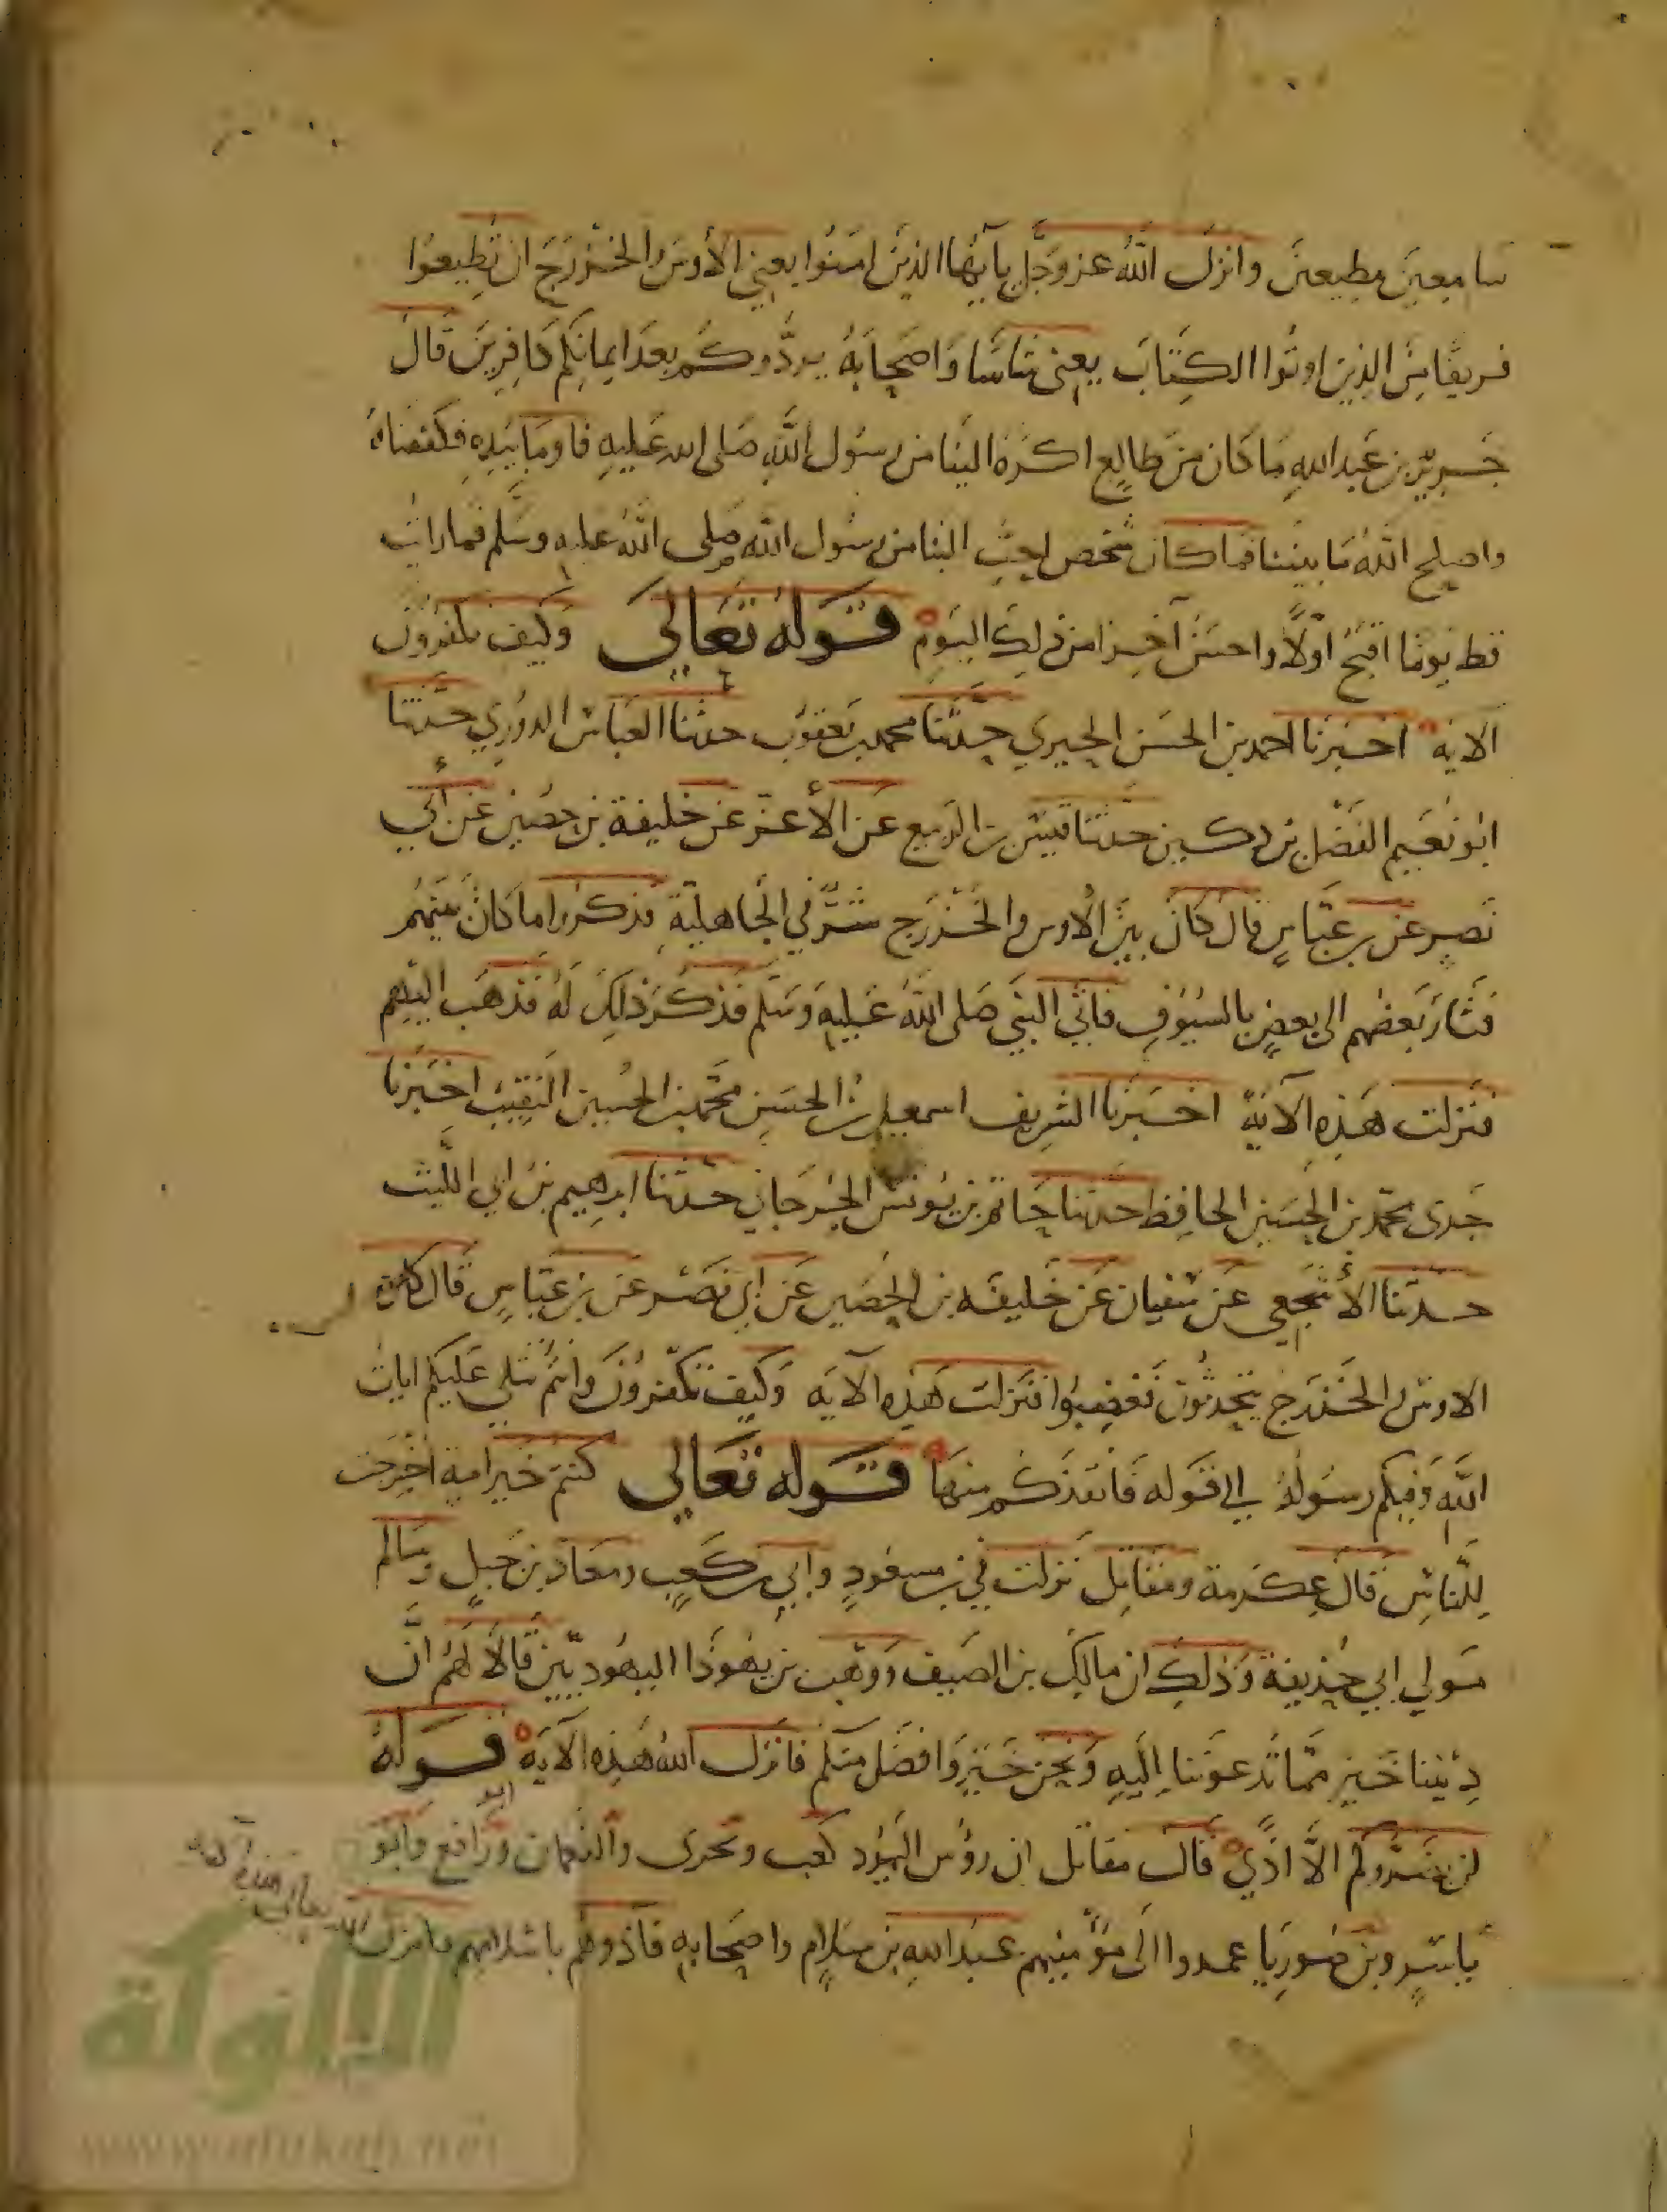 سامعين مطيعين وانزل الله عز وجل يا آيها الذين امنوا يعني الأوس والخزرج ان تطيعوا
فريقا من الذين اوتوا الكتاب يعني شاسا واصحابه يردوكم بعد ايمانكم كافرين قال
جرير بن عبد الله ما كان من طالع اكره الينا من رسول الله صلى الله عليه فاومأ بيده فكففنا
واصلح الله ما بيننا فما كان شخص احب الينا من رسول الله صلى الله عليه وسلم فما رايت
قط يوما اقبح اولا واحسن آخرا من ذلك اليوم قوله تعالى وكيف تكفرون
الآية اخبرنا احمد بن الحسن الحيري حدثنا محمد بن يعقوب حدثنا العباس الدوري حدثنا
ابو نعيم الفضل بن دكين حدثنا قيس بن الربيع عن الأعز عن خليفة بن حصين عن أبي
نصر عن بن عباس قال كان بين الأوس والخزرج شر في الجاهلية فذكروا ما كان بينهم
فثار بعضهم الى بعض بالسيوف فاتي النبي صلى الله عليه وسلم فذكر ذلك له فذهب اليهم
فنزلت هذه الآية اخبرنا الشريف اسمعيل بن الحسن محمد بن الحسين النقيب اخبرنا
جدى محمد بن الحسين الحافظ حدثنا حاتم بن يونس الجرجاني حدثنا ابرهيم بن ابي الليث
حدثنا الأشجعي عن سفيان عن خليفة بن الحصين عن ابي نصر عن بن عباس قال كان
الاوس والخزرج يتحدثون فغضبوا فنزلت هذه الآية وكيف تكفرون وانتم تتلى عليكم ايات
الله وفيكم رسوله الي قوله فانقذكم منها قوله تعالى كنتم خير امة اخرجت
للناس قال عكرمة ومقاتل نزلت في بن مسعود وابي بن كعب ومعاذ بن جبل وسالم
مولي ابي حذيفة وذلك ان مالك بن الصيف ووهب بن يهوذا اليهوديين قالا لهم ان
ديننا خير مما تدعوننا اليه ونحن خير وافضل منكم فانزل الله هذه الآية قوله
لن يضروكم الا اذي قال مقاتل ان رؤس اليهود كعب وبحرى والنعمان وابو رافع وابو
ياسر وبن صوريا عمدوا الى مؤمنيهم عبد الله بن سلام واصحابه فآذوهم باسلامهم فانزل الله تعالى هذه الآية
الألوكة
www.alukah.net